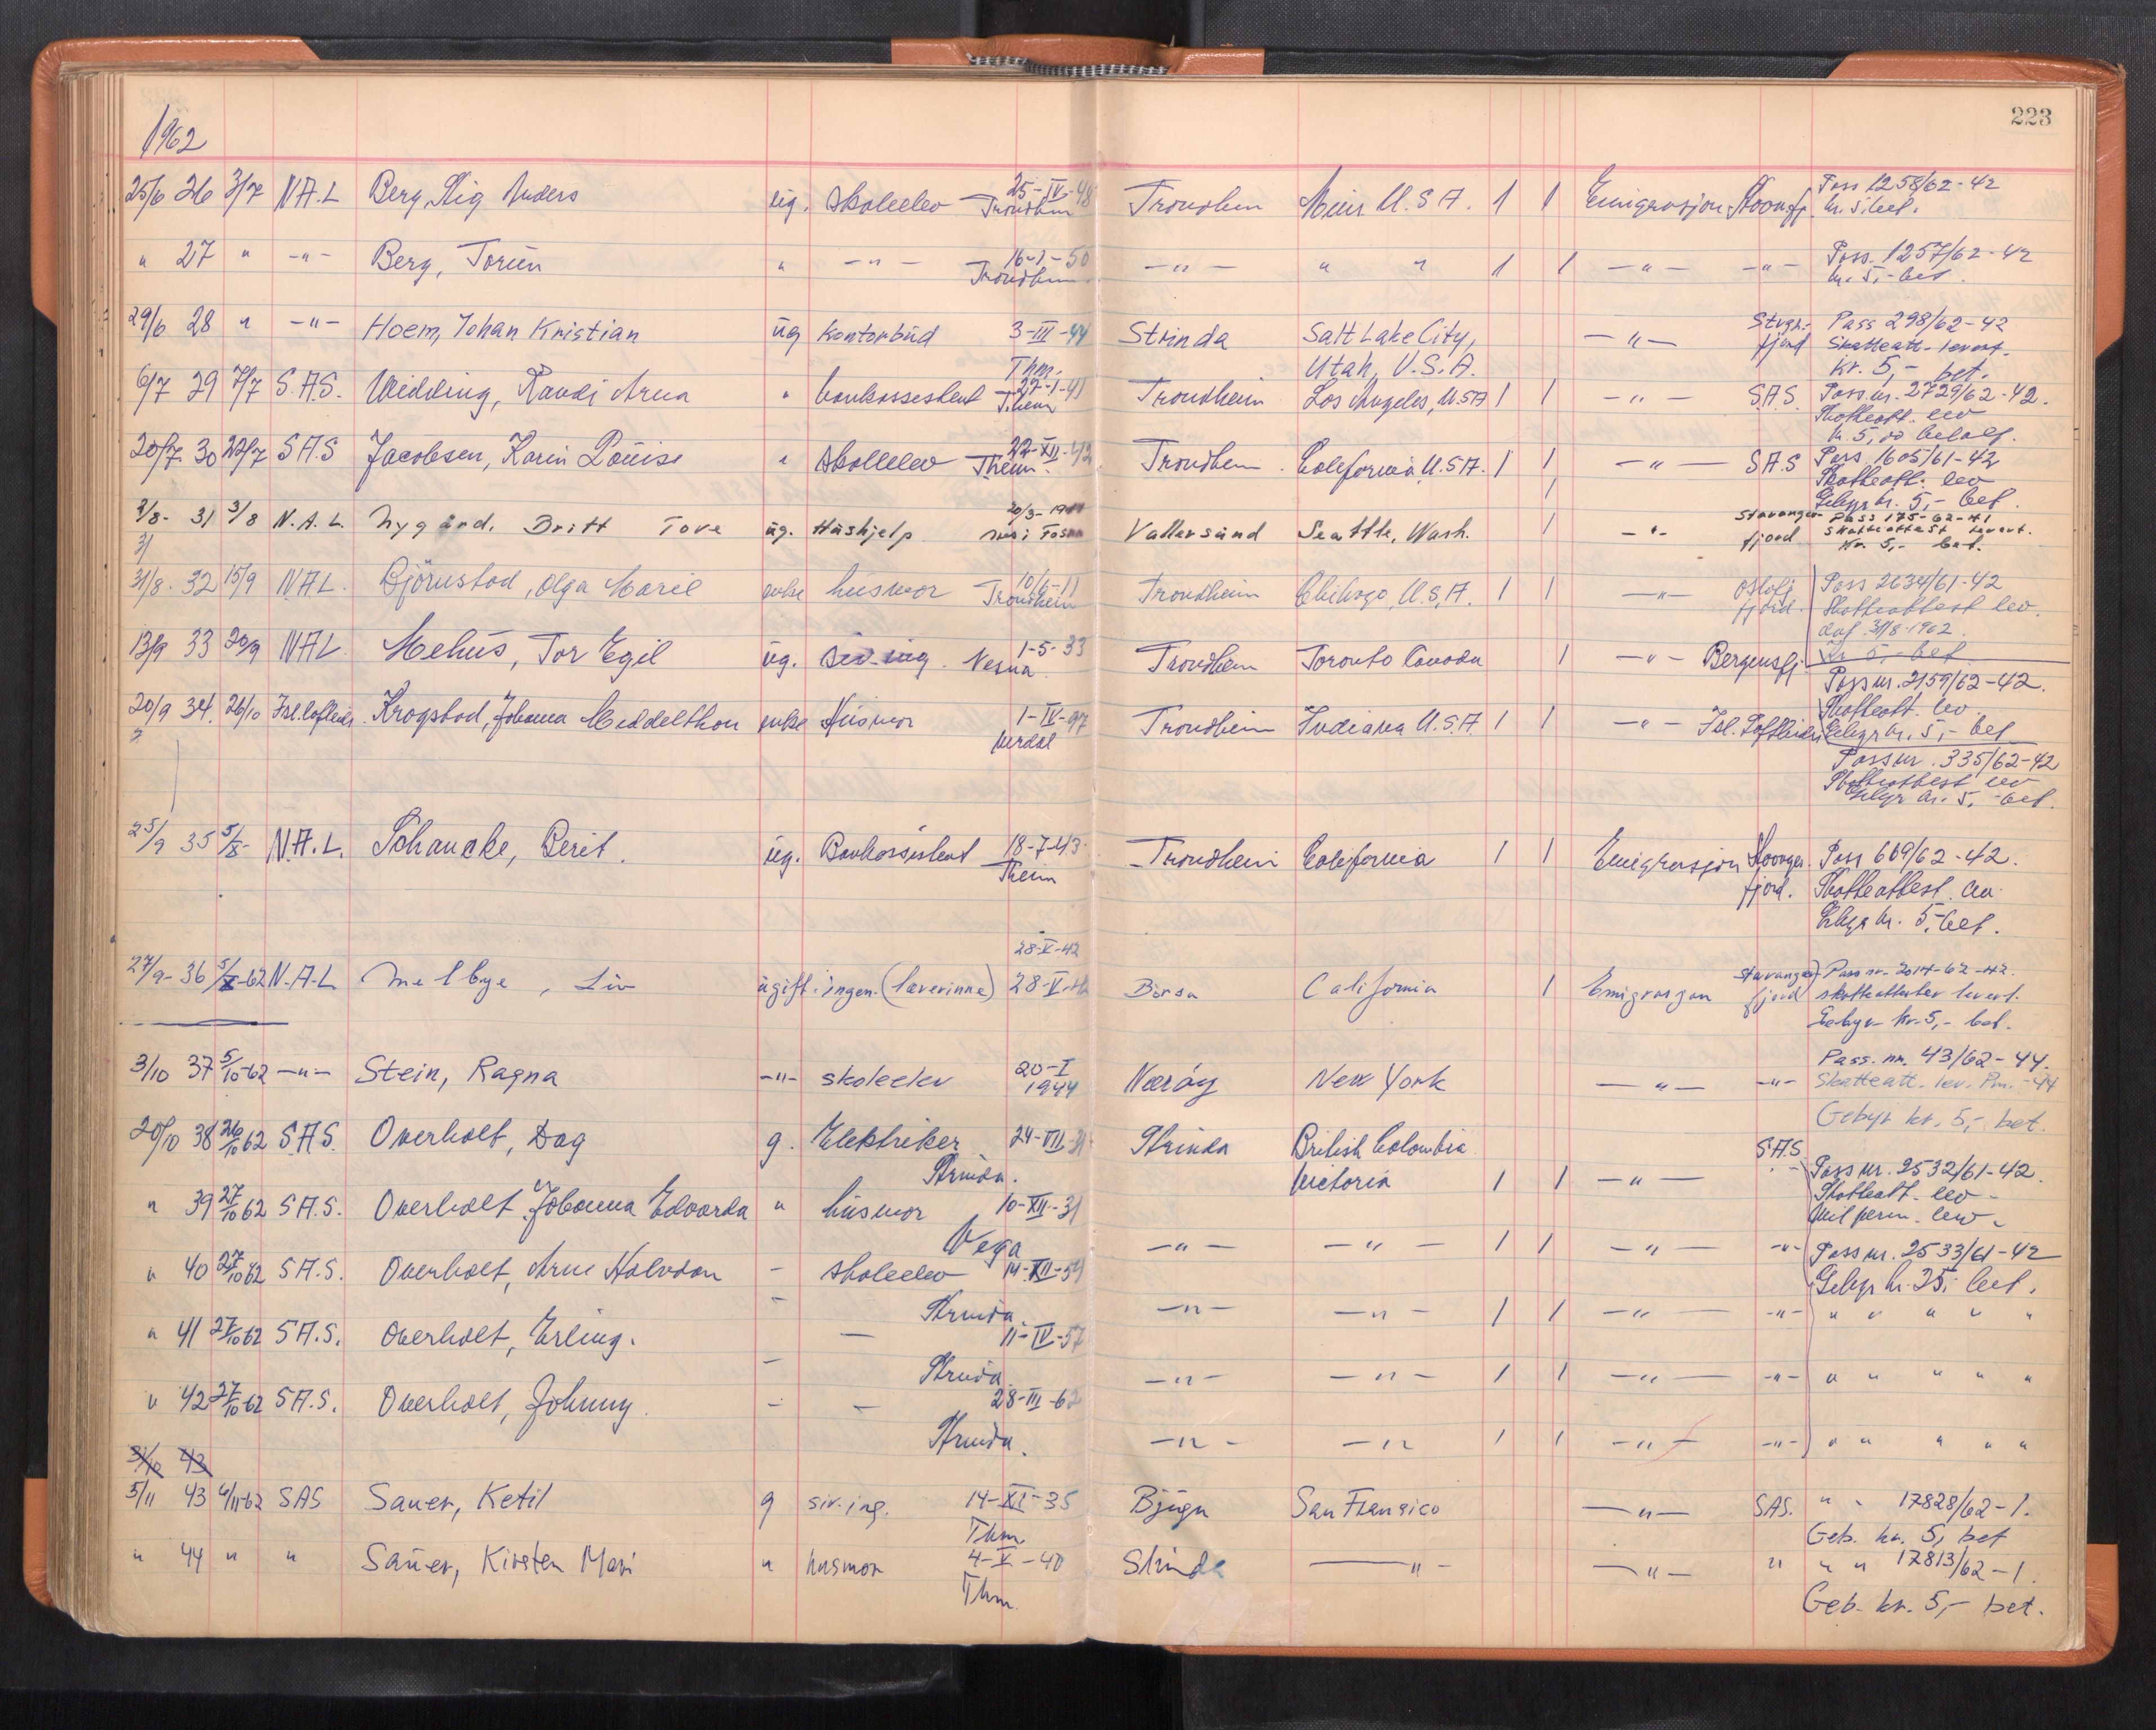 223
1962
25/6 26 3/7 N.A.L Berg, Stig Anders ug. skoleelev 25-IV-48 Trondheim Trondheim U.S.A. 1 1 Emigrasjon Pass 1258/62-42
kr. 5 bet.
" 27 " -"- Berg, Torun " -"- 16-1-50 Trondheim -"- " " 1 1 -"- -"- Pass. 1257/62-42
kr. 5,- bet.
29/6 28 " -"- Hoem, Johan Kristian ug kontorbud 3-III-44 Thm. Strinda Salt Lake City, Utah, U.S.A. -"- Stvgr.-fjord Pass 298/62-42
Skatteatt. levert.
kr. 5,- bet.
6/7 29 7/7 S.A.S. Widding, Randi Arna " bankassistent 27-1-41 Them Trondheim Los Angeles, U.S.A 1 1 -"- S.A.S Pass nr. 2729/62-42.
Skatteatt. lev
kr. 5,00 betalt.
20/7 30 22/7 S.A.S Jacobsen, Karin Louise " skoleelev 22-XII-42 Them. Trondheim California U.S.A. 1 1 -"- S.A.S Pass 1605/61-42
Skatteatt. lev
Gebyr kr. 5,- bet.
2/8- 31 3/8 N.A.L. Nygård, Britt Tove ug. Hushjelp 20/3-1944 Vallersund Seattle, Wash. 1 -"- Stavanger-fjord Pass 175-62-41
Skatteattest levert.
Kr. 5,- bet.
31/8. 32 15/9 N.A.L. Björnstad, Olga Marie enke husmor 10/6-11 Trondheim Trondheim Chicago, U.S.A. 1 1 -"- Oslofj fjord. Pass 2634/61-42
Skatteattest lev.
dat. 31/8-1962.
kr 5,- bet
13/9 33 20/9 NAL Mehus, Tor Egil ug. siv.ing. 1-5-33 Nesna Trondheim Toronto Canada 1 -"- Bergensfj. Pass nr. 2159/62-42.
Skatteatt. lev.
Gebyr kr. 5,- bet
20/9 34. 26/10 Isl. Loftleidir Krogstad, Johanna Middelthon enke Husmor 1-IV-97 Verdal Trondheim Indiana U.S.A 1 1 -"- Isl. Loftleidir
Pass nr. 335/62-42
Skatteattest lev
Gebyr kr. 5,- bet.
25/9 35 5/X- N.A.L. Schancke, Berit. ug. Bankassistent 18-7-43 Them Trondheim California 1 1 Emigrasjon Stavanger-fjord. Pass 669/62-42.
Skatteattest lev.
Gebyr kr. 5,- bet.
28-V-42
27/9- 36 5/X-62 N.A.L Melbye, Liv ugift ingen (lærerinne) 28-V-42 Börsa California 1 Emigrasjon Stavangerfjord Pass nr. 2014-62-42.
skatteattester levert.
Gebyr kr. 5,- bet.
3/10 37 5/10-62 -"- Stein, Ragna -"- skoleelev 20-I 1944 Nærøy New York -"- -"- Pass. nr. 43/62-44.
Skatteatt. lev. Pm.-44
Gebyr kr. 5,- bet.
20/10 38 26/10 62 S.A.S. Overholt, Dag g. Elektriker 24-VII-31 Strinda. Strinda British Colombia Victoria 1 1 -"- S.A.S. Pass nr. 2532/61-42.
Skatteatt. lev-
Util perm. lev.
" 39 27/10 62 S.A.S. Overholt, Johanna Edvarda " husmor 10-XII-31 Vega -"- -"- 1 1 -"- -"- Pass nr. 2533/61-42
Gebyr kr. 25,- bet.
" 40 27/10 62 S.A.S. Overholt, Arne Halvdan - skoleelev 14-XII-54 Strinda. -"- -"- 1 1 -"- -"- " " " " "
" 41 27/10 62 S.A.S. Overholt, Erling. - - 11-IV-57 Strinda. -"- -"- 1 1 -"- -"- " " " " "
" 42 27/10-62 S.A.S. Overholt, Johnny. - - 28-III-62 Strinda. -"- -"- 1 1 -"- -"- " " " " "
31/10 43
5/11 43 6/11-62 SAS Sauer, Ketil g siv.ing. 14-XI-35 Thm. Bjugn San Fransico -"- SAS. " " 17828/62-1.
Geb. kr. 5, bet
" 44 " " Sauer, Kirsten Mari " husmor 4-V-40 Thm. Strinda -"- -"- " " " 17813/62-1.
Geb. kr. 5,- bet.